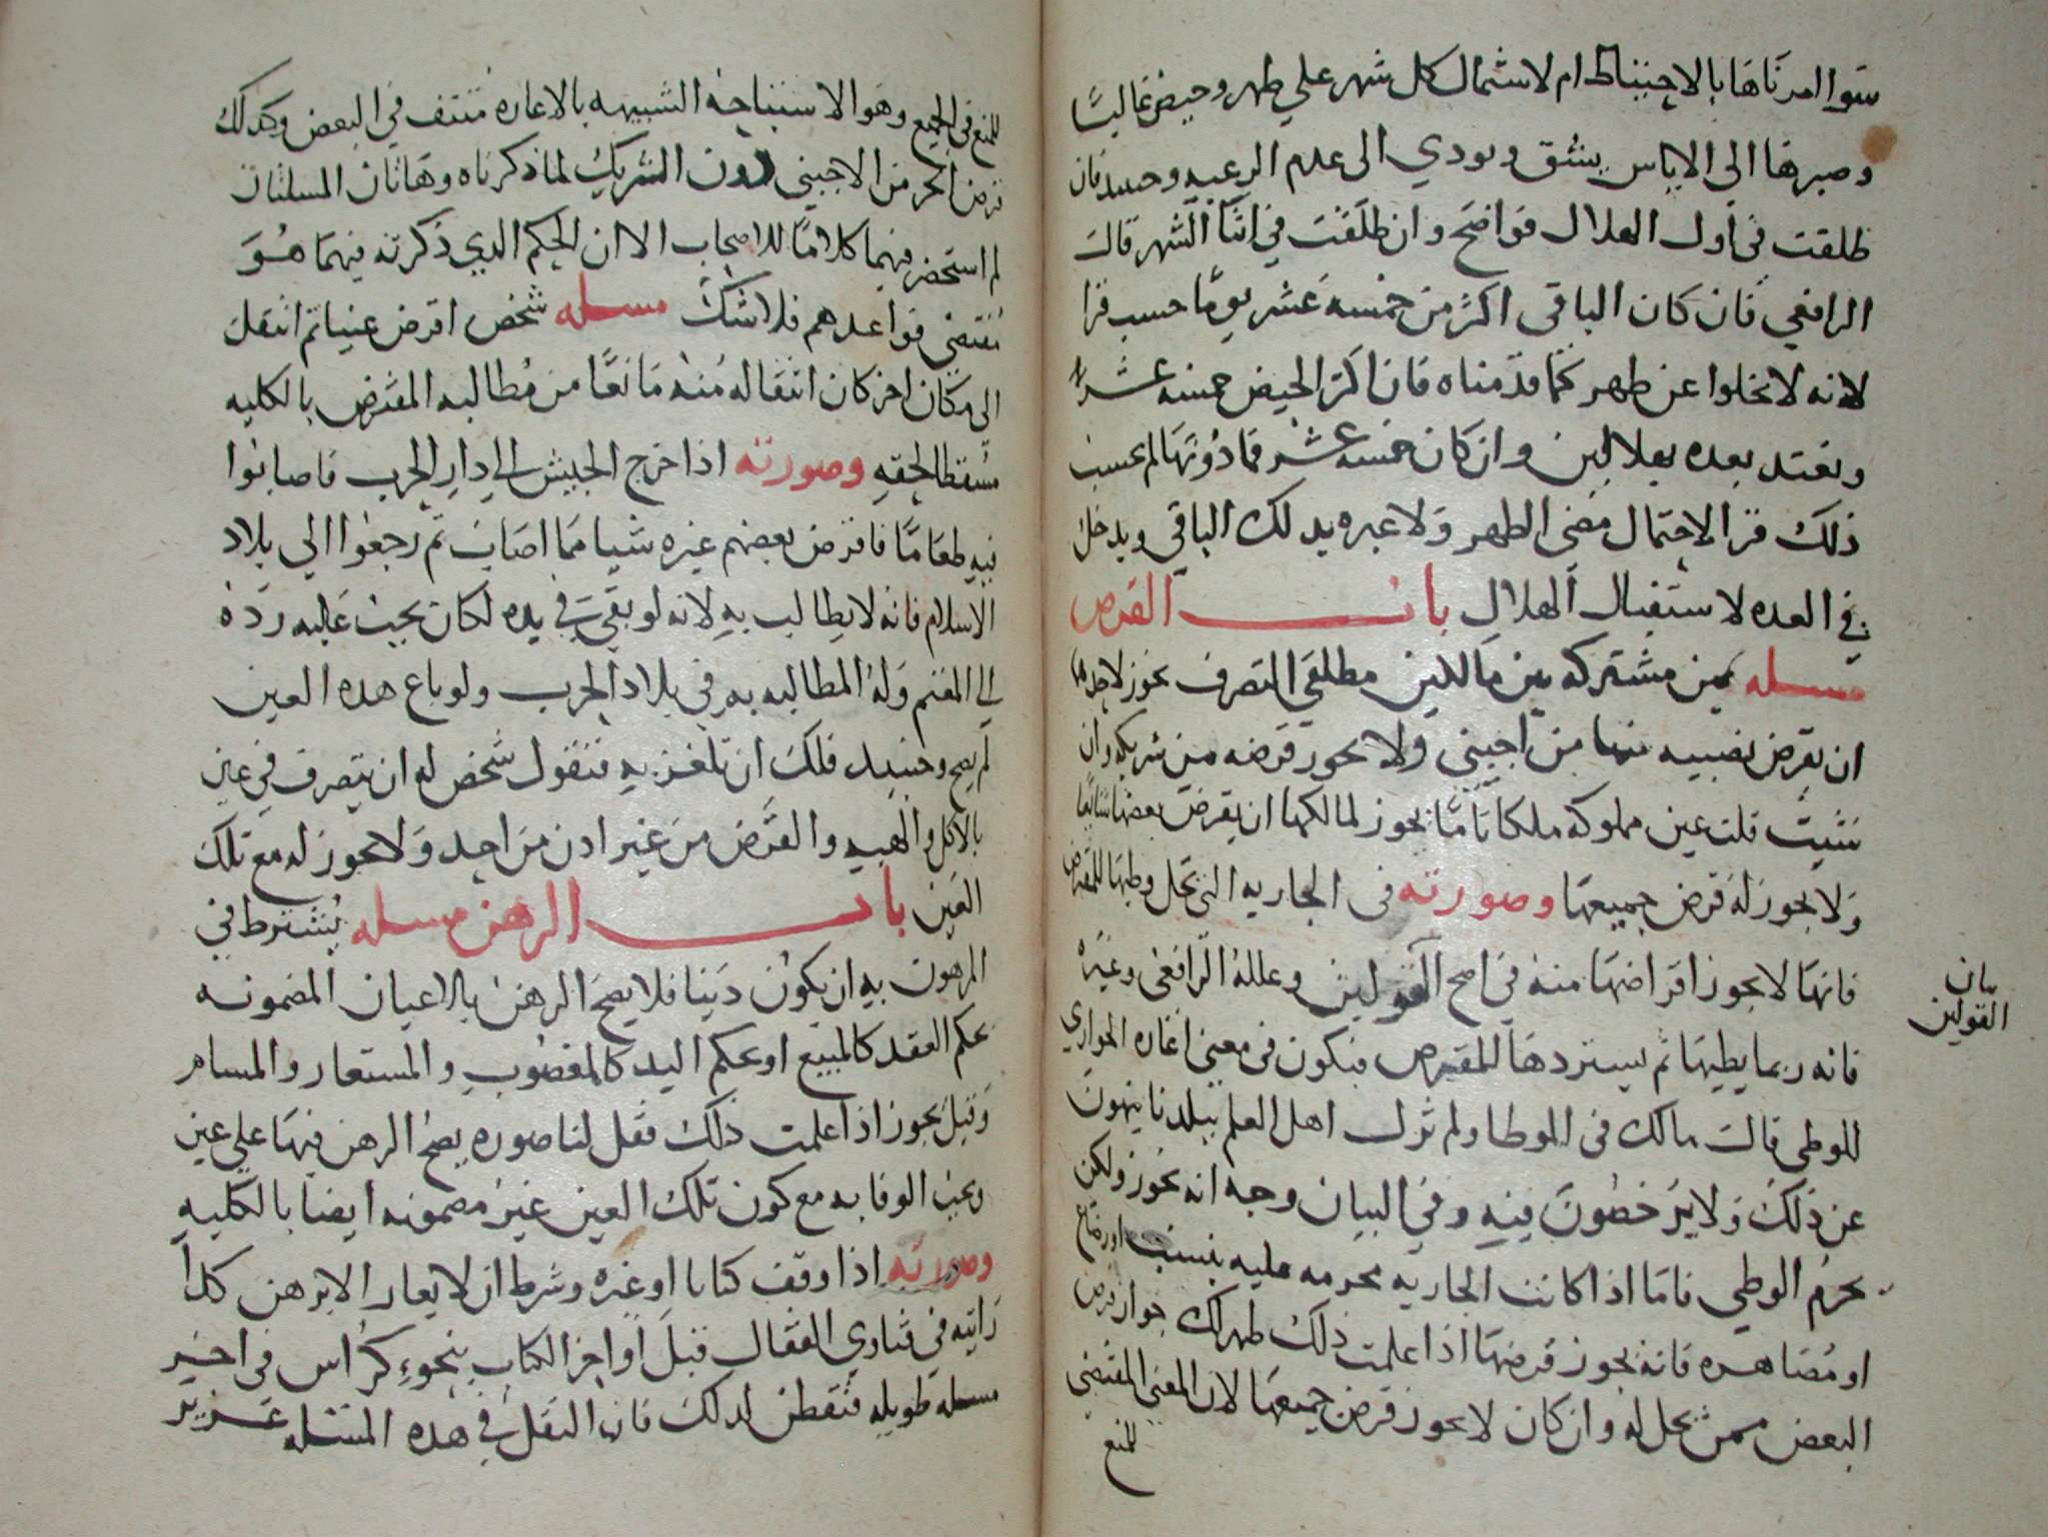 سوا امرناها بالاحتياط ام لا شتمال كل شهر علي طهر وحيض غالبًا
وصبرها الي الاياس يشق ويودي الى عدم الرغبه وحينيد فان
طلقت في اول الهلال فواضح وان طلقت في اثنا الشهر قالت
الرافعي فان كان الباقى اكثر من خمسه عشر يومًا حسب قرا
لانه لا يخلوا عن طهر كما قدمناه فان اكثر الحيض خمسه عشر
وتعتد بعده بهلالين وان كان خمسه عشر فما دونها لم يحسب
ذلك قرا لاحتمال مضي الطهر ولا عبره بدلك الباقي ويدخل
في العده لاستقبال الهلال باب القرض
مسله عين مشتركه بين مالكين مطلقي التصرف يجوز لاحدهما
ان يقرض نصيبه منها من اجنبي ولا يجوز قرضه من شريكه وان
شيت قلت عين مملوكه ملكا تامًا يجوز لمالكها ان يقرض بعضها شايعًا
ولا يجوز له قرض جميعها وصورته فى الجاريه التي يحل وطيها للمقترض
فانها لا يجوز اقراضها منه في اصح القولين وعلله الرافعي وغيره
فانه ربما يطيها ثم يستردها المقرض فيكون في معنى اعاره الجواري
للوطي قالت مالك فى الموطا ولم تزل اهل العلم ببلدنا ينهون
عن ذلك ولا يرخصون فيه وفي البيان وجه انه يجوز ولكن
يحرم الوطي فاما اذا كانت الجاريه محرمه عليه بنسب او رضاع
او مصاهره فانه يجوز قرضها اذا علمت ذلك ظهر لك جواز قرض
البعض ممن يحل له وان كان لا يجوز قرض جميعها لان المعنى المقتضي
للمنع
بيان
القولين
للمنع في الجميع وهو الاستباحه الشبيهه بالاعاره منتف في البعض وكدلك
قرض من الاجنبي دون الشريك لما ذكرناه وهاتان المسلتان
لم استحضر فيهما كلامًا للاصحاب الا ان الحكم الدي ذكرته فيهما هو
مقتضي قواعدهم فلا شك مسله شخص اقرض عينا ثم انتقل
الى مكان اخر كان انتقاله منه مانعًا من مطالبه المقترض بالكليه
مسقطا لحقه وصورته اذا خرج الجيش الي دار الحرب فاصابوا
فيه طعامًا فاقرض بعضهم غيره شيا مما اصاب ثم رجعوا الي بلاد
الاسلام فانه لا يطالب به لانه لو بقي في يده لكان يجب عليه رده
الي المغنم وله المطالبه به في بلاد الحرب ولو باع هده العين
لم يصح وحينيد فلك ان تلغز به فتقول شخص له ان يتصرف في عين
بالاكل والهبه والقرض من غير ادن من احد ولا يجوز له مع تلك
العين باب الرهن مسله يشترط في
المرهون به ان يكون دينا فلا يصح الرهن بالاعيان المضمونه
بحكم العقد كالمبيع او بحكم اليد كالمغصوب والمستعار والمسام
وقيل يجوز اذا علمت ذلك فقل لنا صوره يصح الرهن فيها علي عين
ويجب الوفا به مع كون تلك العين غير مضمونه ايضا بالكليه
وصورته اذا وقف كتابا او غيره وشرط ان لا يعار الا برهن كذا
رايته في فتاوي القفال قبل اواخر الكتاب بنحو كراس في اخير
مسله طويله فتفطن لدلك فان النقل في هده المسله عزيز